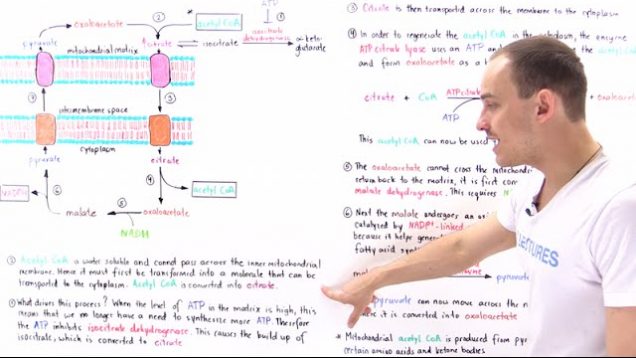 ATP
①
oxaloacetate
②
*
acetyl CoA
isocitrate
dehydrogenase
pyruvate
↑citrate
isocitrate
α-keto-
glutarate
mitochondrial matrix
⑦
③
cytoplasm
pyruvate
citrate
④
NADPH
⑥
acetyl CoA
malate
⑤
oxaloacetate
NADH
Acetyl CoA is water soluble and cannot pass across the inner mitochondrial
membrane. Hence it must first be transformed into a molecule that can be
transported to the cytoplasm. Acetyl CoA is converted into citrate.
What drives this process? When the level of ATP in the matrix is high, this
means that we no longer have a need to synthesize more ATP. Therefore
the ATP inhibits isocitrate dehydrogenase. This causes the build up of
isocitrate, which is converted to citrate
③ Citrate is then transported across the membrane to the cytoplasm
④ In order to regenerate the acetyl CoA in the cytoplasm, the enzyme
ATP citrate lyase uses an ATP and
and form oxaloacetate as a
citrate + CoA
ATP citrate
ATP
+ oxaloacetate
This acetyl CoA can now be used
⑤ The oxaloacetate cannot cross the
return back to the matrix, it is first
malate dehydrogenase. This requires
⑥ Next the malate undergoes an
catalyzed by NADP⁺-linked
because it helps
fatty acid
pyruvate
pyruvate can now move across the
where it is converted into oxaloacetate
* Mitochondrial acetyl CoA is produced from
certain amino acids and ketone bodies
LECTURES